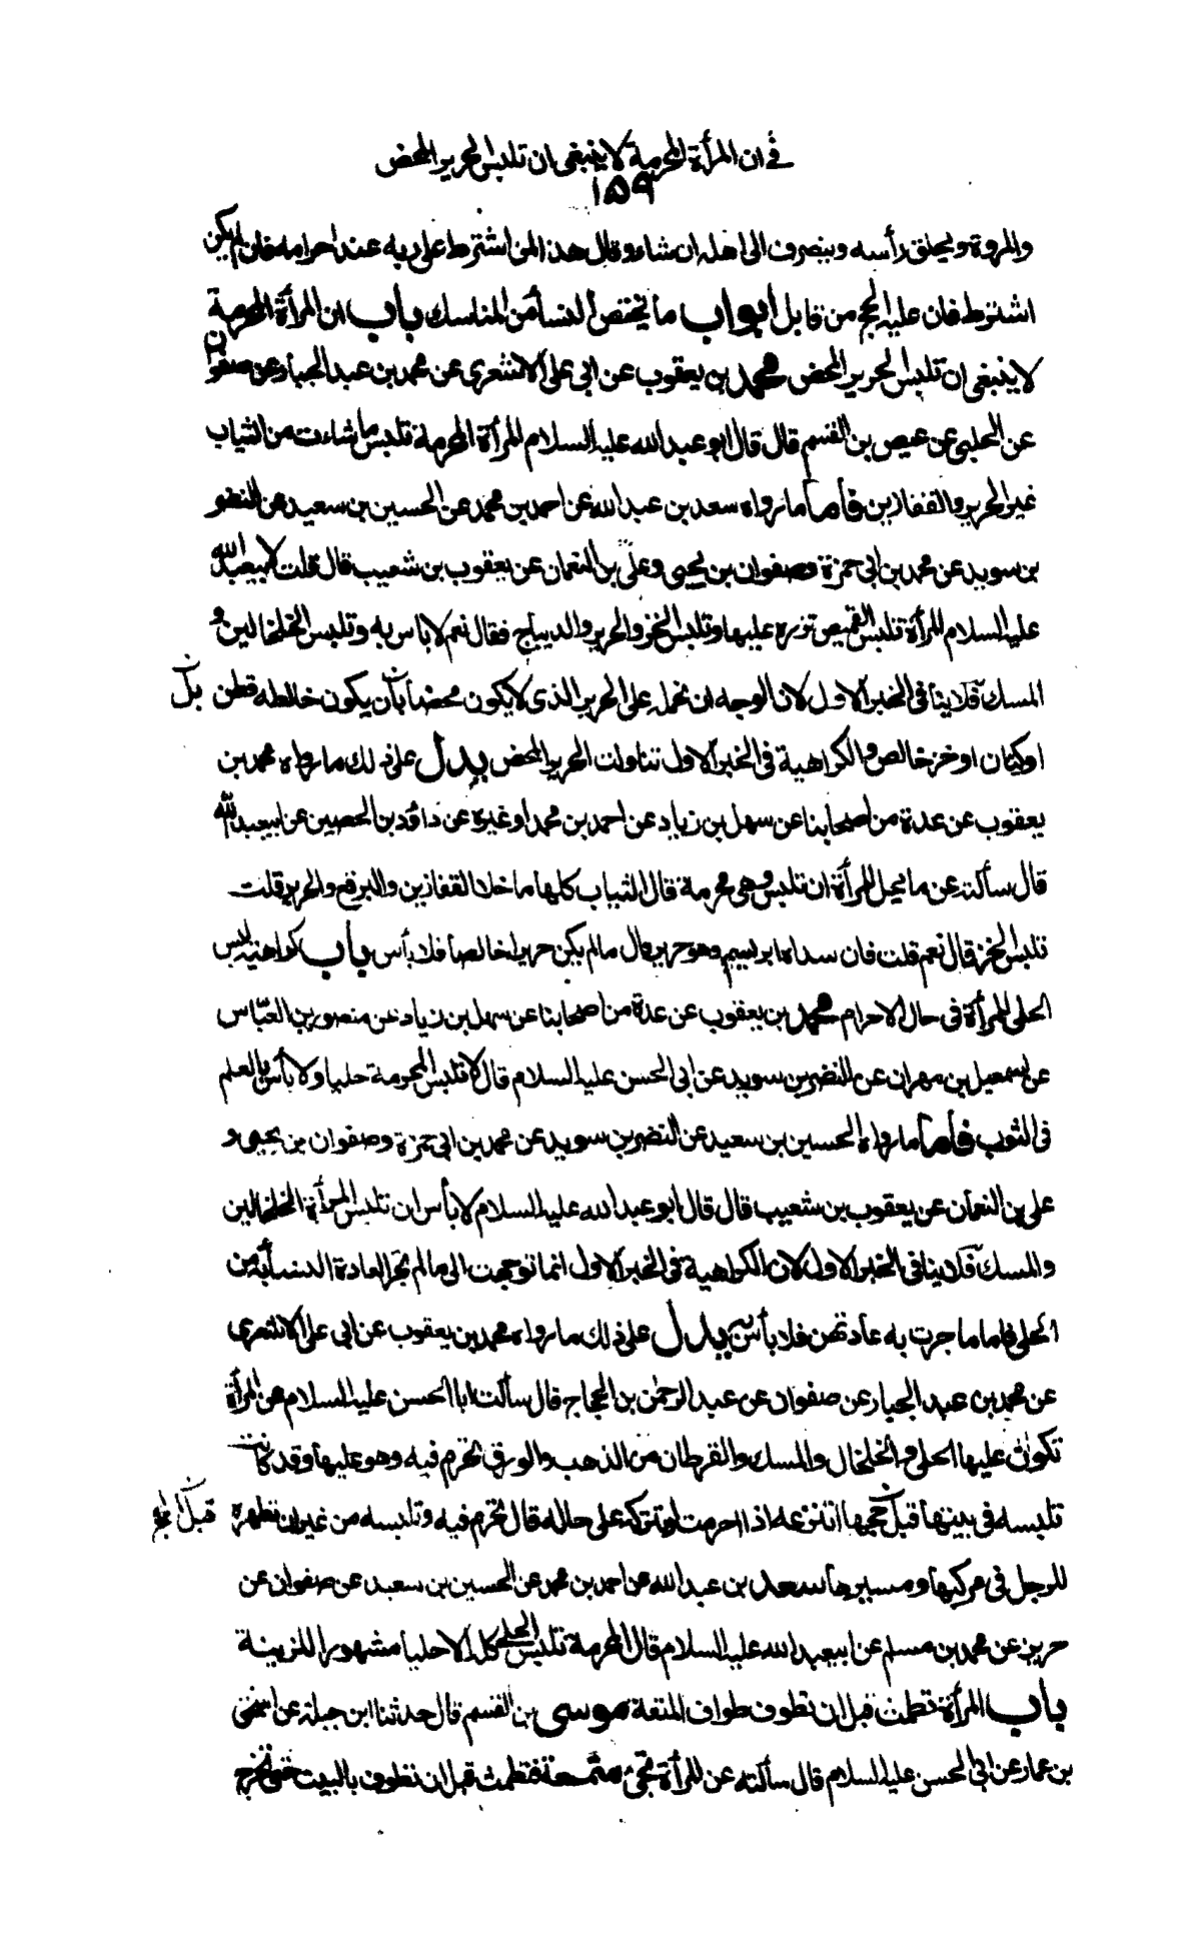 في ان المرأة المحرمة لا ينبغي ان تلبس الحرير المحض
١٥٩
والمروة وليحلق رأسه وينصرف الى اهله ان شاء وقال هذا لمن اشترط على ربه عند احرامه فان لم يكن
اشترط فان عليه الحج من قابل ابواب ما يختص النسأ من المناسك باب ان المرأة المحرمة
لا ينبغي ان تلبس الحرير المحض محمد بن يعقوب عن ابي علي الاشعري عن محمد بن عبد الجبار عن صفوان
عن الحلبي عن عيص بن القسم قال قال ابو عبد الله عليه السلام المرأة المحرمة تلبس ما شاءت من الثياب
غير الحرير والقفازين فأما ما رواه سعد بن عبد الله عن احمد بن محمد عن الحسين بن سعيد عن النضر
بن سويد عن محمد بن ابي حمزة وصفوان بن يحيى وعلي بن النعمان عن يعقوب بن شعيب قال قلت لابيعبد الله
عليه السلام المرأة تلبس القميص تزره عليها وتلبس الخز والحرير والديباج فقال نعم لا باس به وتلبس الخلخالين و
المسك فلا ينافي الخبر الاول لان الوجه ان نحمله على الحرير الذي لا يكون محضا بأن يكون خالطه قطن
او كتان او خز خالص والكراهية في الخبر الاول تناولت الحرير المحض يدل على ذلك ما رواه محمد بن
يعقوب عن عدة من اصحابنا عن سهل بن زياد عن احمد بن محمد او غيره عن داود بن الحصين عن ابيعبد الله
قال سألته عن ما يحل للمرأة ان تلبس وهي محرمة قال الثياب كلها ما خلا القفازين والبرقع والحرير قلت
تلبس الخز قال نعم قلت فان سداه ابريسيم وهو حرير قال ما لم يكن حريرا خالصا فلا بأس باب كراهية لبس
الحلي للمرأة في حال الاحرام محمد بن يعقوب عن عدة من اصحابنا عن سهل بن زياد عن منصور بن العباس
عن اسمعيل بن مهران عن النضر بن سويد عن ابي الحسن عليه السلام قال لا تلبس المحرمة حليا ولا بأس بالعلم
في الثوب فأما ما رواه الحسين بن سعيد عن النضر بن سويد عن محمد بن ابي حمزة وصفوان بن يحيى و
علي بن النعمان عن يعقوب بن شعيب قال قال ابو عبد الله عليه السلام لا بأس ان تلبس المرأة الخلخالين
والمسك فلا ينافي الخبر الاول لان الكراهية في الخبر الاول انما توجهت الى ما لم تجر العادة النسأ به من
الحلي فاما ما جرت به عادتهن فلا بأس به يدل على ذلك ما رواه محمد بن يعقوب عن ابي علي الاشعري
عن محمد بن عبد الجبار عن صفوان عن عبد الرحمن بن الحجاج قال سألت ابا الحسن عليه السلام عن المرأة
تكون عليها الحلي والخلخال والمسك والقرطان من الذهب والورق تحرم فيه وهو عليها وقد كانت
تلبسه في بيتها قبل حجها اتنزعه اذا احرمت او تتركه على حاله قال تحرم فيه وتلبسه من غير ان تظهره
للرجل في مركبها ومسيرها سعد بن عبد الله عن احمد بن محمد عن الحسين بن سعيد عن صفوان عن
حريز عن محمد بن مسلم عن ابيعبد الله عليه السلام قال المحرمة تلبس الحلي كله الا حليا مشهورا للزينة
باب المرأة تطمث قبل ان تطوف طواف المتعة موسى بن القسم قال حدثنا ابن جبلة عن اسحق
بن عمار عن ابي الحسن عليه السلام قال سألته عن المرأة تجئ متمتعة فتطمث قبل ان تطوف بالبيت حتى تخرج